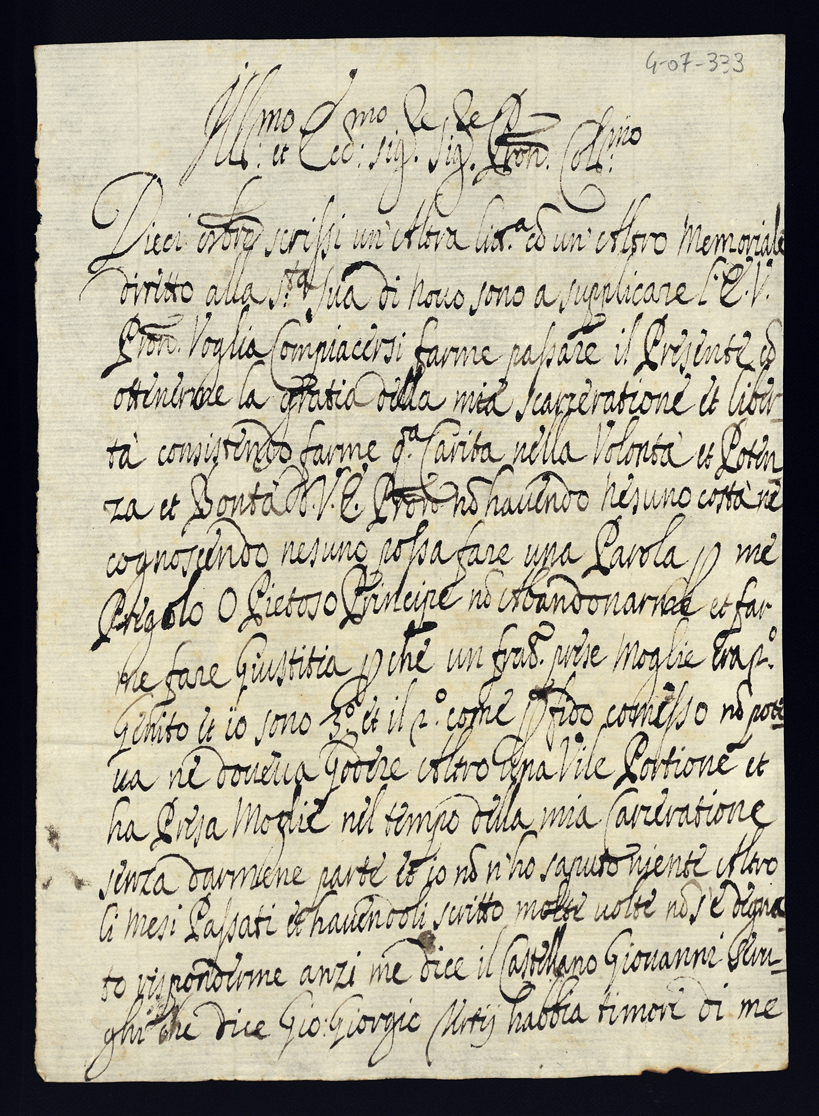 4-07-333
Ill:mo et Ecc:mo Sig.re Sig.re Pron. Coll:mo
Dieci scrissi un' Altra litt.a cō un' Altro Memoriale
diritto alla S.ta Sua di novo sono a supplicare l' E. V.
Pron. Voglia Compiacersi farme passare il Presente cō
ottenerme la gratia della mia scarzeratione et liber-
tà consistendo farme q.a Carita nella Volontà et Poten-
za et Bontà D. V. E. Pron nō havendo nesuno costà nè
cognoscendo nesuno possa fare una Parola p me
Pregolo O Pietoso Principe nō Abandonarme et far
me fare Giustitia p che un frad. prese Moglie era p.o
Genito et io sono 3.o et il 2.o come p fido comesso nō pote
va ne doveva Godere Altro Vile Portione et
ha Presa Moglie nel tempo della mia Carzeratione
senza darmene parte et io nō n'ho saputo niente Altro
li Mesi Passati et havendoli scritto molte volte nō s'e degna-
to rispónderme anzi me dice il Castellano Giovanni
ghi che dice Gio: Giorgio habbia timori di me